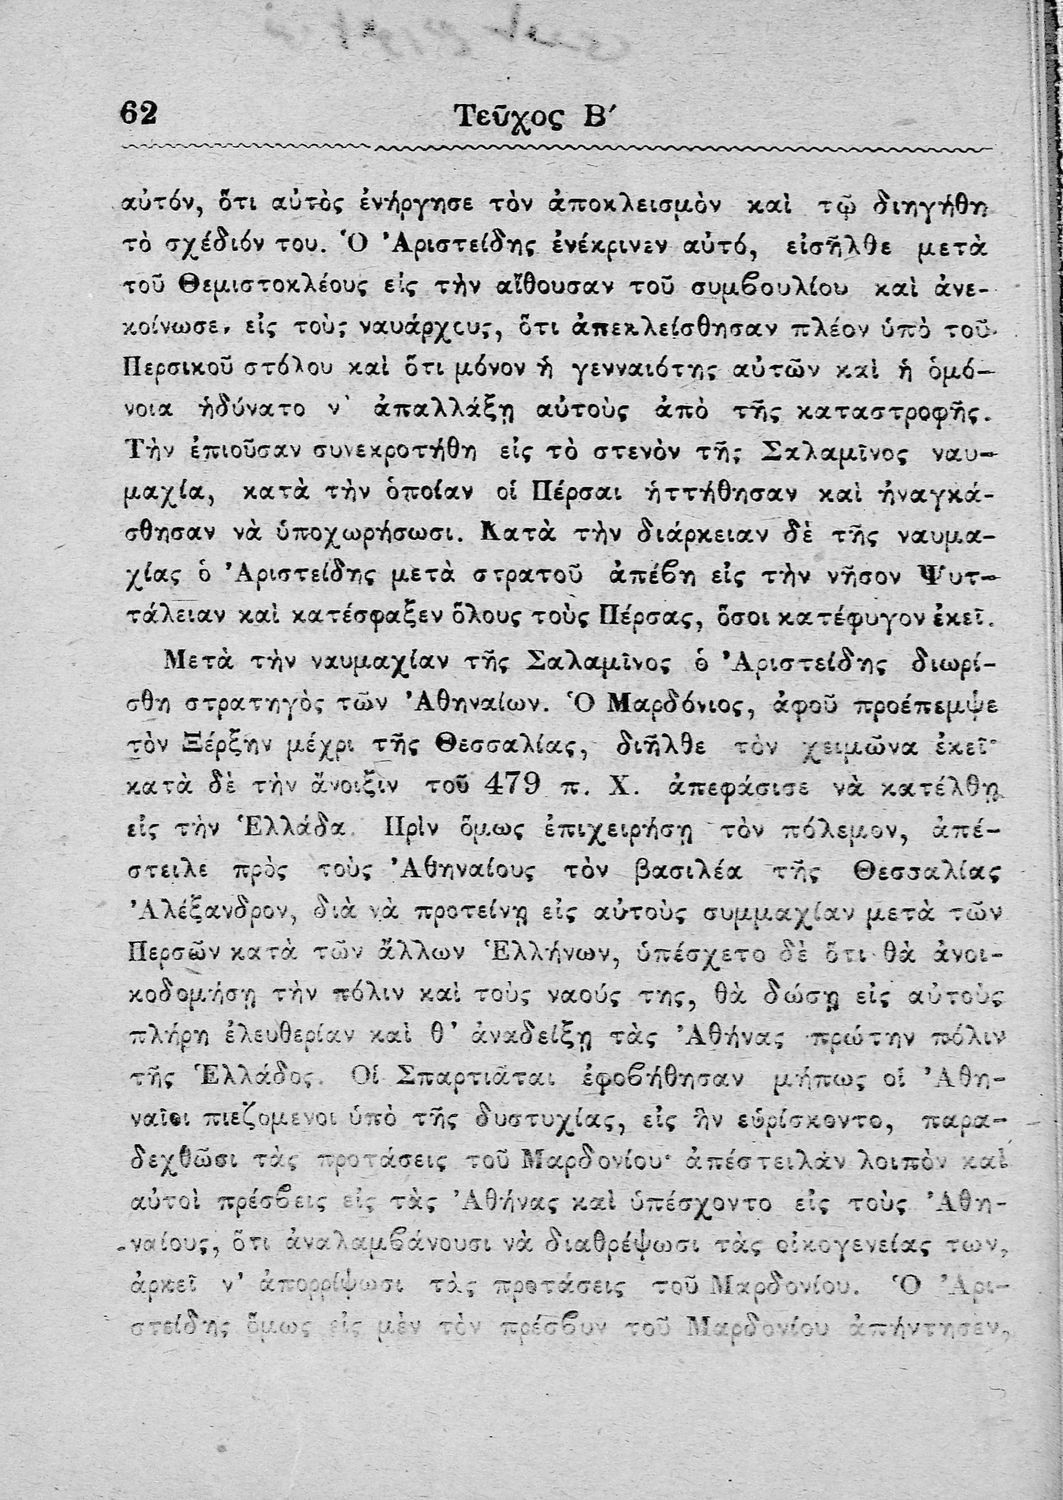 62 Τεῦχος Β′
αὐτόν, ὅτι αὐτὸς ἐνήργησε τὸν ἀποκλεισμὸν καὶ τῷ διηγήθη
τὸ σχέδιόν του. Ὁ Ἀριστείδης ἐνέκρινεν αὐτό, εἰσῆλθε μετὰ
τοῦ Θεμιστοκλέους εἰς τὴν αἴθουσαν τοῦ συμϐουλίου καὶ ἀνε-
κοίνωσε, εἰς τοὺς ναυάρχους, ὅτι ἀπεκλείσθησαν πλέον ὑπὸ τοῦ
Περσικοῦ στόλου καὶ ὅτι μόνον ἡ γενναιότης αὐτῶν καὶ ἡ ὁμό-
νοια ἠδύνατο ν' ἀπαλλάξῃ αὐτοὺς ἀπὸ τῆς καταστροφῆς.
Τὴν ἐπιοῦσαν συνεκροτήθη εἰς τὸ στενὸν τῆς Σαλαμῖνος ναυ-
μαχία, κατὰ τὴν ὁποίαν οἱ Πέρσαι ἡττήθησαν καὶ ἠναγκά-
σθησαν νὰ ὑποχωρήσωσι. Κατὰ τὴν διάρκειαν δὲ τῆς ναυμα-
χίας ὁ Ἀριστείδης μετὰ στρατοῦ ἀπέϐη εἰς τὴν νῆσον Ψυτ-
τάλειαν καὶ κατέσφαξεν ὅλους τοὺς Πέρσας, ὅσοι κατέφυγον ἐκεῖ.
Μετὰ τὴν ναυμαχίαν τῆς Σαλαμῖνος ὁ Ἀριστείδης διωρί-
σθη στρατηγὸς τῶν Ἀθηναίων. Ὁ Μαρδόνιος, ἀφοῦ προέπεμψε
τὸν Ξέρξην μέχρι τῆς Θεσσαλίας, διῆλθε τὸν χειμῶνα ἐκεῖ·
κατὰ δὲ τὴν ἄνοιξιν τοῦ 479 π. Χ. ἀπεφάσισε νὰ κατέλθῃ
εἰς τὴν Ἑλλάδα. Πρὶν ὅμως ἐπιχειρήσῃ τὸν πόλεμον, ἀπέ-
στειλε πρὸς τοὺς Ἀθηναίους τὸν βασιλέα τῆς Θεσσαλίας
Ἀλέξανδρον, διὰ νὰ προτείνῃ εἰς αὐτοὺς συμμαχίαν μετὰ τῶν
Περσῶν κατὰ τῶν ἄλλων Ἑλλήνων, ὑπέσχετο δὲ ὅτι θὰ ἀνοι-
κοδομήσῃ τὴν πόλιν καὶ τοὺς ναούς της, θὰ δώσῃ εἰς αὐτοὺς
πλήρη ἐλευθερίαν καὶ θ' ἀναδείξῃ τὰς Ἀθήνας πρώτην πόλιν
τῆς Ἑλλάδος. Οἱ Σπαρτιᾶται ἐφοϐήθησαν μήπως οἱ Ἀθη-
ναῖοι πιεζόμενοι ὑπὸ τῆς δυστυχίας, εἰς ἣν εὑρίσκοντο, παρα-
δεχθῶσι τὰς προτάσεις τοῦ Μαρδονίου· ἀπέστειλαν λοιπὸν καὶ
αὐτοὶ πρέσϐεις εἰς τὰς Ἀθήνας καὶ ὑπέσχοντο εἰς τοὺς Ἀθη-
ναίους, ὅτι ἀναλαμϐάνουσι νὰ διαθρέψωσι τὰς οἰκογενείας των,
ἀρκεῖ ν' ἀπορρίψωσι τὰς προτάσεις τοῦ Μαρδονίου. Ὁ Ἀρι-
στείδης ὅμως εἰς μὲν τὸν πρέσϐυν τοῦ Μαρδονίου ἀπήντησεν,